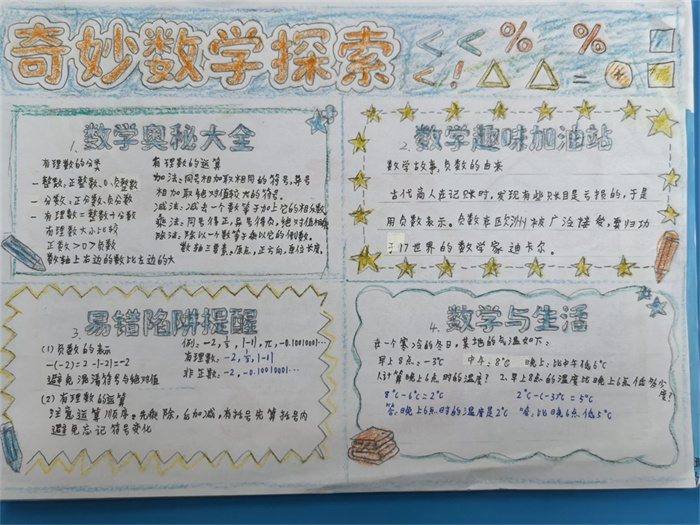 奇妙数学探索
< < % %
< ! △ △ =
1. 数学奥秘大全
有理数的分类
一 整数，正整数、0、负整数
一 分数，正分数、负分数
一 有理数=整数十分数
有理数大小比较
正数>0>负数
数轴上右边的数比左边的大
有理数的运算
加法：同号相加取相同的符号，异号
相加取绝对值较大的符号。
减法：减去一个数等于加上它的相反数
乘法：同号得正，异号得负，绝对值相乘
除法：除以一个数等于乘以它的倒数。
数轴三要素，原点，正方向，单位长度。
2. 数学趣味加油站
数学故事，负数的由来
古代商人在记账时，发现有些账目是亏损的，于是
用负数表示。负数在欧洲被广泛接受，要归功
于17世界的数学家迪卡尔。
3. 易错陷阱提醒
(1) 负数的表示
-(-2)=2 -|-2|=-2
避免混淆符号与绝对值
例：-2，|-1|，π，-0.10010001…
有理数：-2，|-1|
非正数：-2，-0.10010001…
(2) 有理数的运算
注意运算顺序，先乘除，后加减，有括号先算括号内
避免忘记符号变化
4. 数学与生活
在一个寒冷的冬日，某地的气温如下：
早上8点：-3℃ 中午：8℃ 晚上：比中午低6℃
1.计算晚上6点时的温度？ 2.早上8点的温度比晚上6点低多少度？
8℃-6℃=2℃ 2℃-(-3℃)=5℃
答：晚上6点时的温度是2℃ 答：比晚上6点低5℃